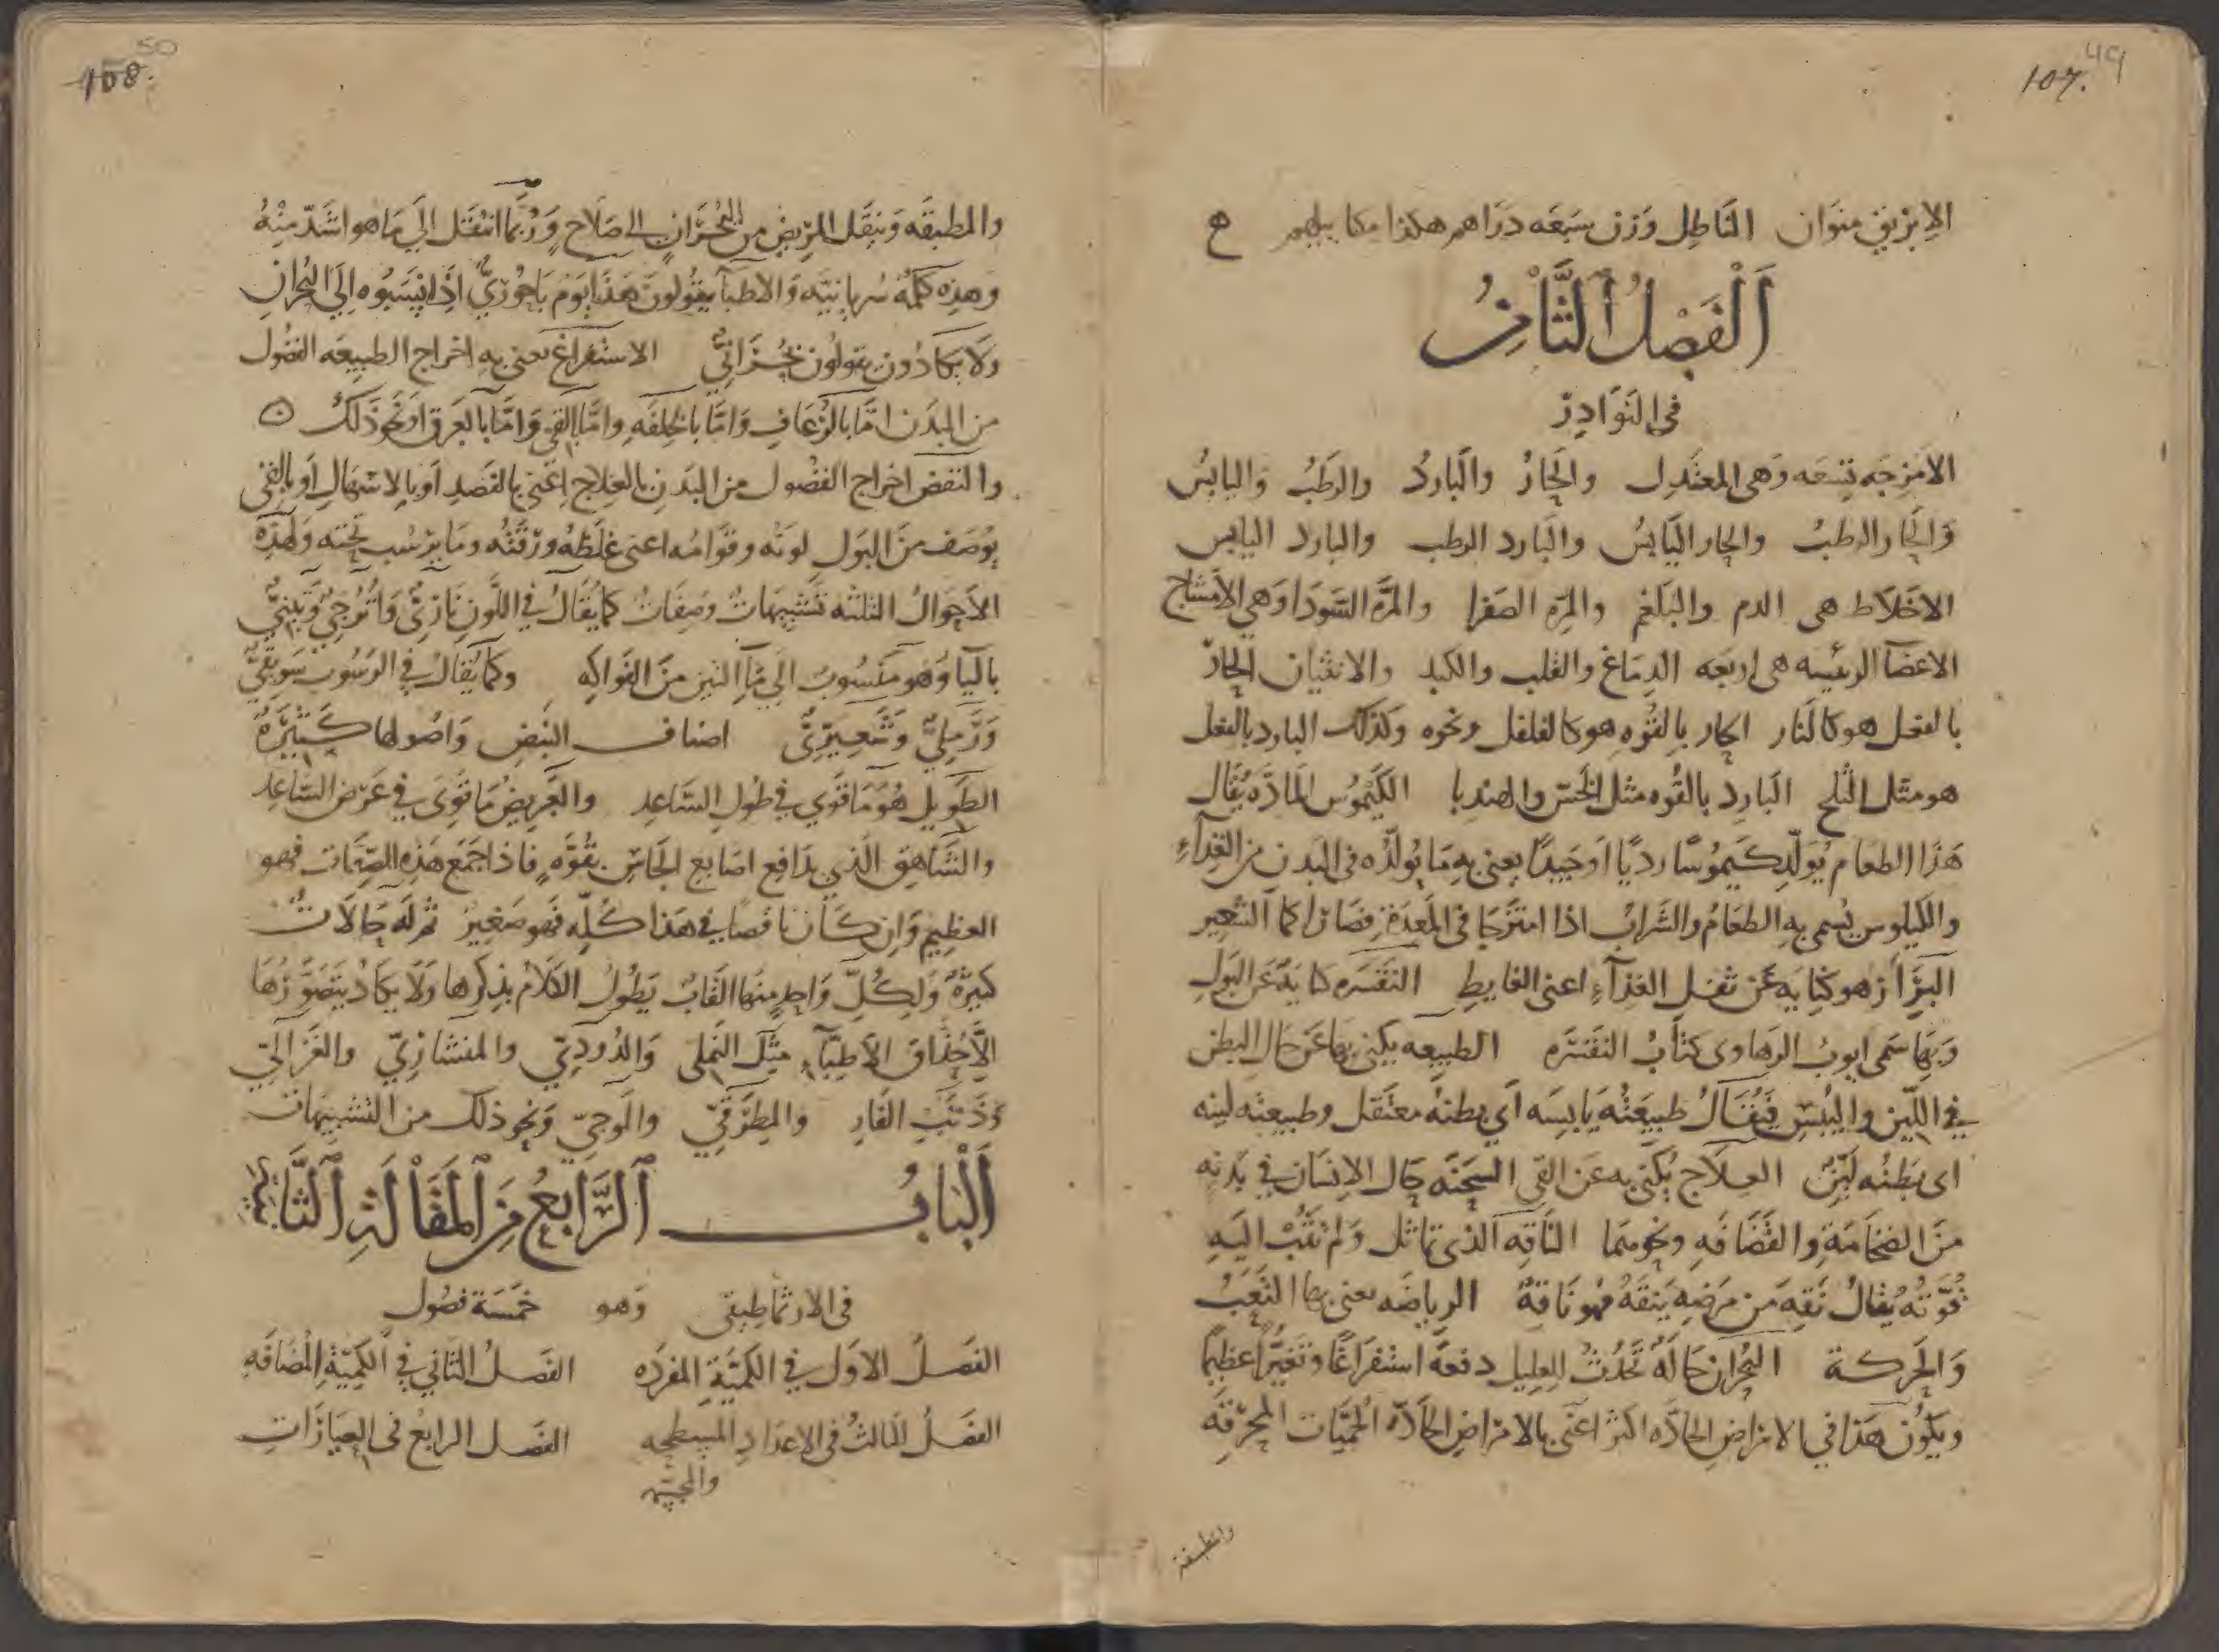 107. 49
الابريق منوان الناطل وزن سبعه دراهم هكذا مكاييلهم ه
اَلْفَصْلُ اَلثَّامِنُ
في النَوَادِر
الامزجَه تِسعَه وَهى المعتَدِل والحَارُ والبَاردُ والرطَبُ واليابسُ
وَالحَار الرطبُ والحار اليَابسُ والبَارد الرطب والبارد اليابس
الاخلَاط هى الدم والبَلغم والمِره الصَفرا والمرَّه السَّودَا وَهي الامشاج
الاعضآ الرئيسه هى اربعَه الدِمَاغ والقلب والكبد والانثيان الحَارّ
بالفعل هو كالنَار الحار بِالقُوه هو كالفلفل ونحوه وكذلك البارد بالفعل
هو مثل الثلج البَارِد بالقُوه مثل الخَسّ والهندبا الكَيْمُوس المَادّه يُقَال
هَذا الطعَام يُوَلّد كَيمُوسًا رديًا او جَيدًا يعنى به مَا يُولّدُه فى البَدن من الغِذآءِ
والكيلوس يُسمى به الطعَامُ والشَرابُ اذا امتزَجَا فى المَعدَةِ وَصَارا كمآ الشَعير
البَرَاز هو كِنَايَه عَن ثفل الغِذآءِ اعنى الغايط التفسَره كنايَة عَن البَولِ
وَبهَا سَمى ايوبُ الرهَاوى كتابُ التفسَره الطبيعه يكنى بهَا عَن حَال البطن
فى اللّين واليُبسِ فيُقَالُ طبيعَتُهُ يَابسَه اَي بطنهُ معتَقل وطبيعته لينه
اى بَطنُه لَيّنٌ العِلَاج يُكنَى به عَن القى السِحَنَه حَال الاِنسَان فى بَدنِه
منَ الضخَامَةِ والقَضَافَهِ ونحوهمَا النَاقِه الذى تماثل وَلم تَثُبْ اليَهِ
قُوَّتهُ يُقالُ نَقِهَ مَن مَرضِه يَنقَهُ فهو نَاقهٌ الرياضَه يعنى بها التَعَبُ
وَالحَركة البُحران حَالَهٌ تَحدُثُ للِعليل دفعَهً استفرَاغًا وتغيّرًا عظيمًا
ويكوُن هَذا في الامرَاضِ الحَادّه اكثر اعَنى بالامرَاضِ الحَادّه الحُميّات المُحرقَه
والمطبقة
50
108.
والمطبقَه وَينقَل المَرِيضُ من البُحرَانِ الى صَلَاح وَرُبَّمَا انتَقَل الى مَا هو اشَدّ مِنْهُ
وَهذِه كلمَةٌ سُريَانيَّه وَالاَطبآ يقُولونَ هَذَا يَوم بَاحُوريٌّ اذَا نَسَبُوه اِلى البُحرانِ
وَلَا يكادُون يقولُون بُحرَانيٌّ الاستفراغ يعنى به اخراج الطبيعَه الفضُول
من البدَن امَّا بالرُعَافِ وَامَّا بالخِلفَهِ وامَّا بالقَىِ وَامَّا بالعَرق اَو نَحوِ ذَلكَ
والنفض اخراج الفضُول من البَدَنِ بالعِلاج اعَنى بالفَصدِ اَو بالاسهَالِ اَو بالقَى
يُوصَف منَ البَول لونُه وقوَامه اعنى غلظهُ ورقّتُه ومَا يرسُب تحَته وَلهذِه
الاَحوَالِ الثلثه تَشبِيهَاتٌ وصِفَاتٌ كما يُقَالُ فى اللَّونِ نَارِىٌّ وَاُترُجىٌّ وَتِينىٌّ
باليَا وَهو مَنسُوب الى مَآ التين منَ الفوَاكِهِ وكما يُقَالُ فى الرسُوب سَوِيقىٌّ
وَرَملىٌّ وَشَعِيرِىٌّ اصناف النَبض وَاصُولها كَثيَرةٌ
الطَوِيل هُو مَا قَوِي في طُولِ السَاعِد والعَرِيضُ مَا قَوِىَ في عَرض السَاعِد
والشَاهِق الّذي يدَافع اصَابع الجَاسّ بقُوَّهٍ فاذا جمَعَ هَذهِ الصِفَات فهو
العظيم وَاِن كَان ناقصًا في هَذا كلّهِ فَهو صَغِير ثم لَه حَالَاتٌ
كبيرَةٌ وَلِكُلِّ وَاحدٍ مِنهَا القَابٌ يَطُولُ الكَلَامُ بذِكرها وَلَا يكَادُ يَتَصَوَّرُهَا
اِلَّا حُذاق الاَطِبّآءِ مِثل النَملى وَالدُودِىّ والمنشارِىّ والغَزالىّ
وَذَنَبِ الفَارِ والمِطرَقيّ والمَوجىّ وَنحو ذلك من التشبيهات
اَلْبَابُ اَلرَّابِعُ مِنَ اَلْمَقَالَةِ اَلثَّانِيَة
في الارثماطيقى وَهو خمسَة فصُول
الفصَلُ الاوَل في الكَميَّةِ المفرَدَه الفَصلُ الثَاني في الكَميّةِ المُضَافَه
الفصَلُ الثَالثُ فى الاعدَادِ المسطحه الفصَل الرابعُ فى العِيَارَاتِ
والمجسّمه